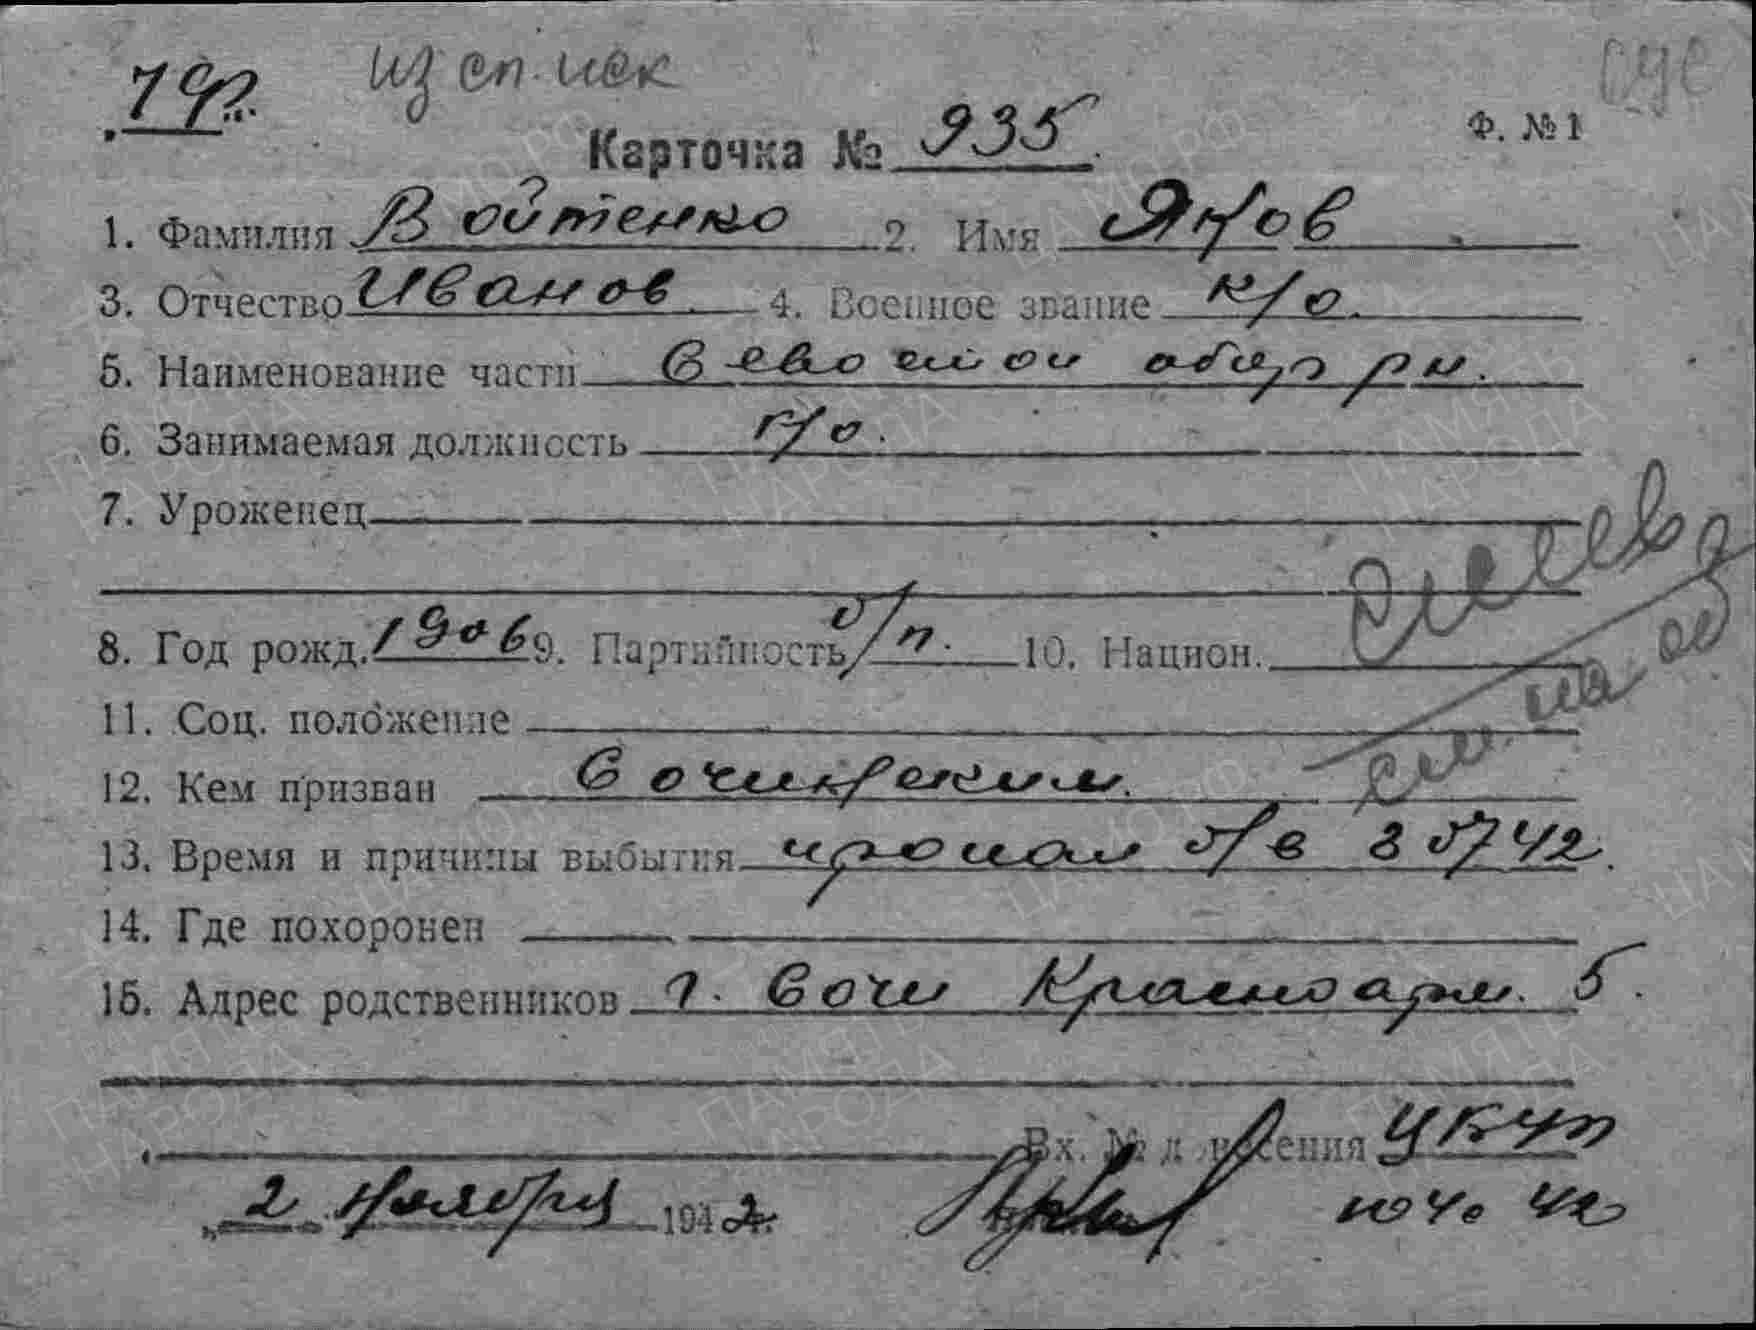 7 ф. из сп. иск
Карточка № 935
Ф. № 1
1. Фамилия Войтенко 2. Имя Яков
3. Отчество Иванов 4. Военное звание к/о.
5. Наименование части Севастоп обор рн.
6. Занимаемая должность к/о.
7. Уроженец
8. Год рожд. 1906 9. Партийность б/п. 10. Национ.
11. Соц. положение
12. Кем призван Сочинским.
см. на об
13. Время и причины выбытия пропал б/в 3 5/7 42.
14. Где похоронен
15. Адрес родственников г. Сочи Красноарм. 5.
Вх. № донесения
„2" Ноября 1942.
ПАМЯТЬ НАРОДА
ЦАМО.РФ